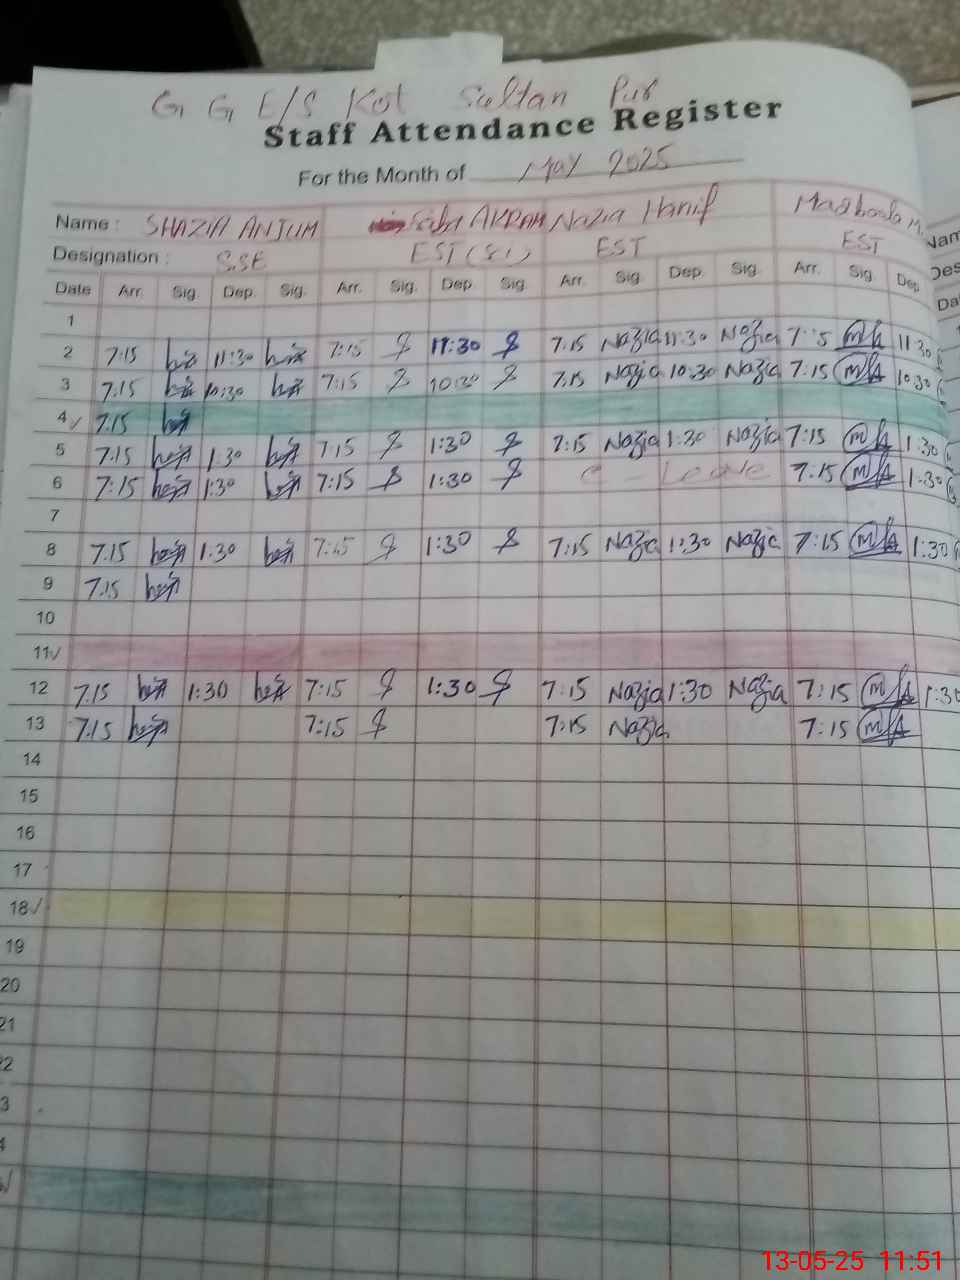 G G E/S Kot Sultan Pur
Staff Attendance Register
For the Month of May 2025
Name : SHAZIA ANJUM Saba AKRAM Nazia Hanif M.
Designation : SSE EST EST EST
Date Arr. Sig. Dep. Sig. Arr. Sig. Dep. Sig. Arr. Sig. Dep. Sig. Arr. Sig. Dep
1
2 7:15 11:30 7:15 11:30 7:15 Nazia 11:30 Nazia 11:30
3 7:15 10:30 7:15 10:30 7:15 Nazia 10:30 Nazia 7:15 M/A 10:30
4 7:15
5 7:15 1:30 7:15 1:30 7:15 Nazia 1:30 Nazia 7:15 M/A 1:30
6 7:15 1:30 7:15 1:30 C-Leave 7:15 M/A 1:30
7
8 7:15 1:30 7:15 1:30 7:15 Nazia 1:30 Nazia 7:15 M/A 1:30
9 7:15
10
11
12 7:15 1:30 7:15 1:30 7:15 Nazia 1:30 Nazia 7:15 M/A 1:30
13 7:15 7:15 7:15 Nazia 7:15 M/A
14
15
16
17
18
19
20
21
22
3
4
13-05-25 11:51